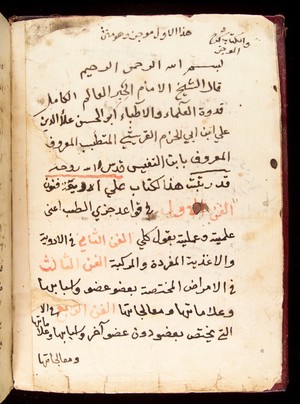 هذا الاول موجز
والكتاب
الموجز
بسم الله الرحمن الرحيم
قال الشيخ الامام الحبر العالم الكامل
قدوة العلماء والاطباء ابو الحسن علا الدين
علي ابن ابي الحزم القرشي المتطبب المعروف
المعروف بابن النفيس قدس الله روحه
قد رتبت هذا كتاب علي اربعة فنون
الفن الاول في قواعد جزي الطب اعني
علمية وعملية بقول كلي الفن الثاني في الادوية
والاغذية المفردة والمركبة الفن الثالث
في الامراض المختصة بعضو عضو واسبابها
وعلاماتها ومعالجاتها الفن الرابع في الا
التي يختص بعضو دون عضو آخر واسبابها وعلاماتها
ومعالجاتها